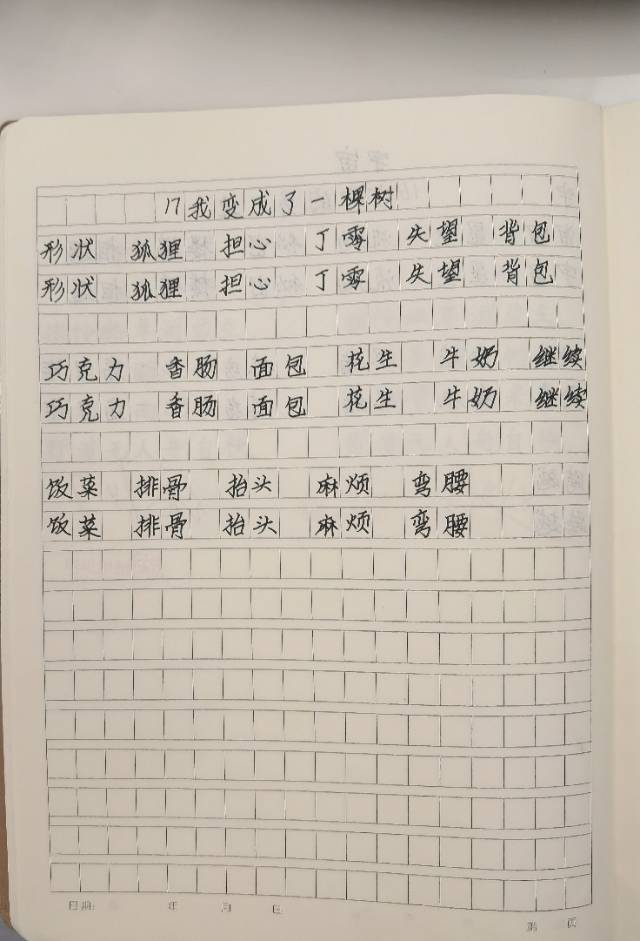 17我变成了一棵树
形状 狐狸 担心 丁零 失望 背包
形状 狐狸 担心 丁零 失望 背包
巧克力 香肠 面包 花生 牛奶 继续
巧克力 香肠 面包 花生 牛奶 继续
饭菜 排骨 抬头 麻烦 弯腰
饭菜 排骨 抬头 麻烦 弯腰
日期: 年 月 日
第 页